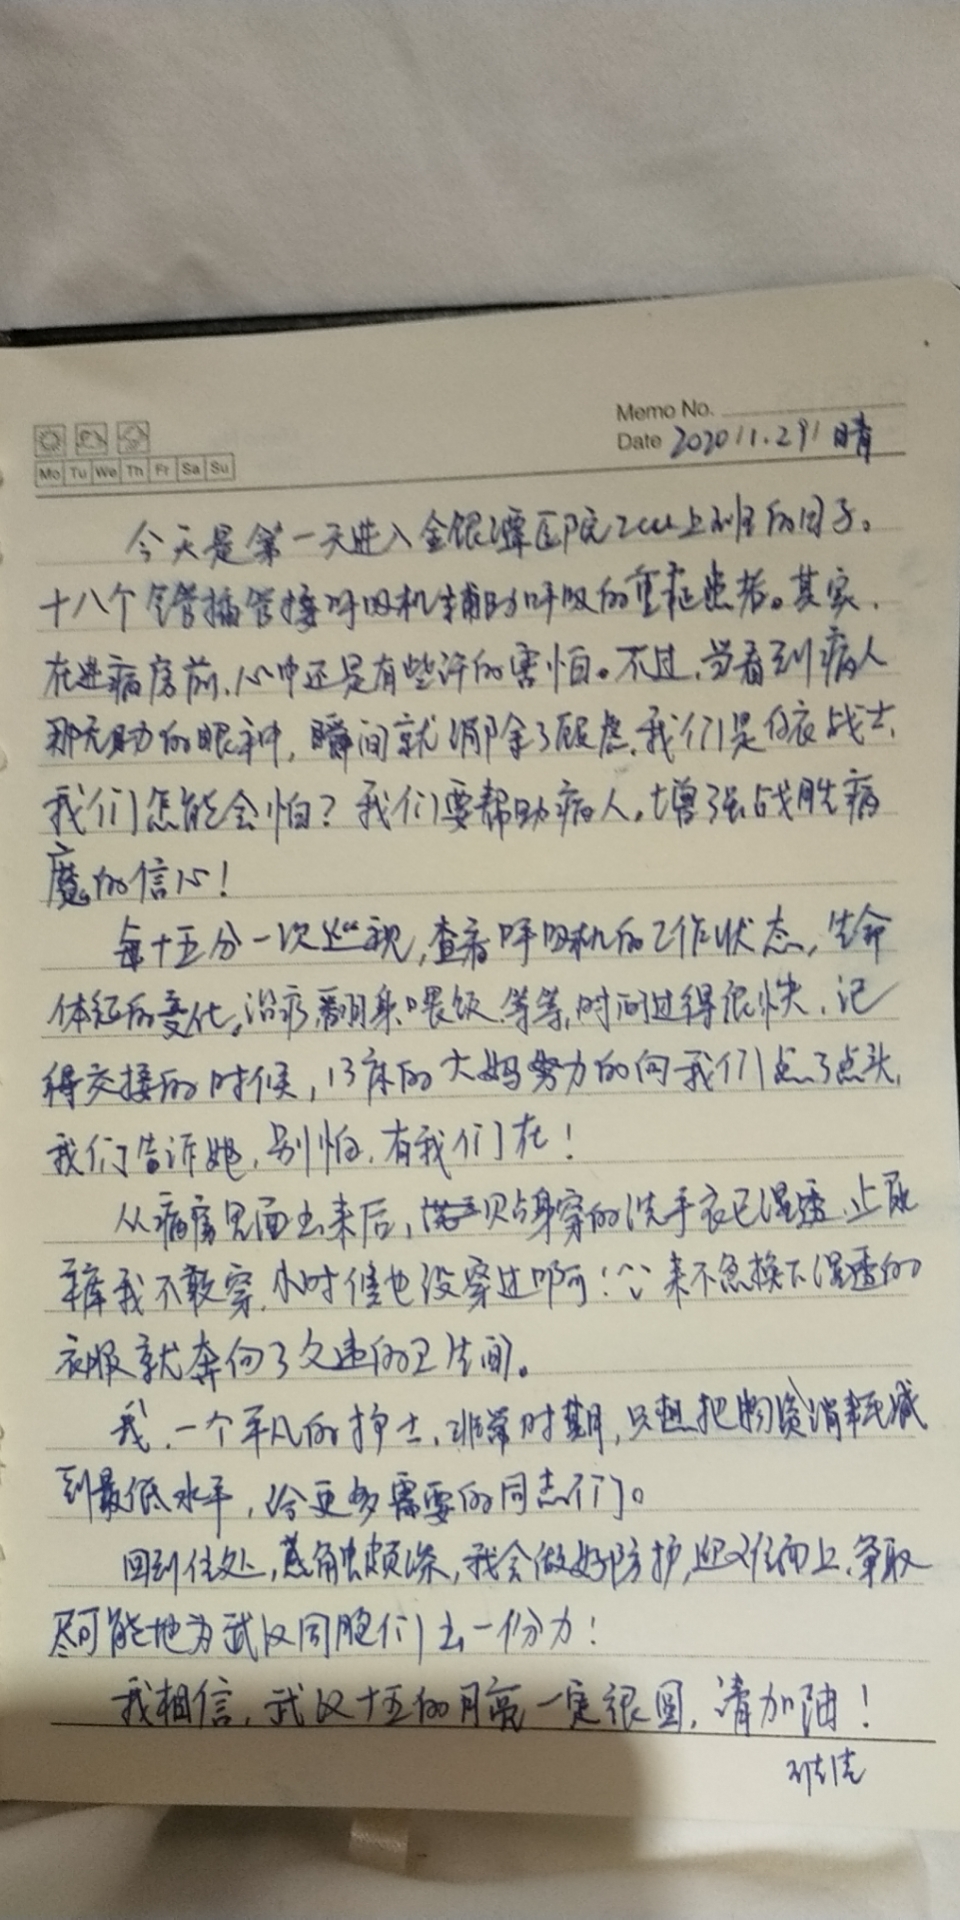 Memo No.
Date 2020/1.29/ 晴
Mo Tu We Th Fr Sa Su
今天是第一天进入金银潭医院Icu上班的日子。
十八个全管插管接呼吸机辅助呼吸的重症患者。其实,
在进病房前,心中还是有些许的害怕。不过,当看到病人
那无助的眼神,瞬间就消除了顾虑,我们是白衣战士,
我们怎能会怕?我们要帮助病人,增强战胜病
魔的信心!
每十五分一次巡视,查看呼吸机的工作状态,生命
体征的变化,治疗,翻身,喂饭,等等,时间过得很快,记
得交接的时候,13床的大妈努力的向我们点了点头,
我们告诉她,别怕,有我们在!
从病房里面出来后,贴身穿的洗手衣已湿透,止尿
裤我不敢穿,小时候也没穿过啊!来不急换下湿透的
衣服就奔向了久违的卫生间。
我,一个平凡的护士,非常时期,只想把物资消耗减
到最低水平,给更多需要的同志们。
回到住处,感触颇深,我会做好防护,迎难而上,争取
尽可能地为武汉同胞们出一份力!
我相信,武汉十五的月亮一定很圆,请加油!